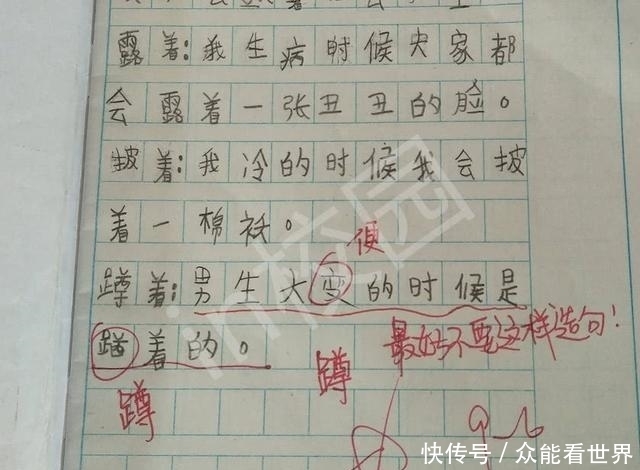 露着:我生病时候大家都
会露着一张丑丑的脸。
披着:我冷的时候我会披
着一棉袄。
便
蹲着:男生大变的时候是
着的。
最好不要这样造句!
蹲
蹲
in校园
快传号/众能看世界